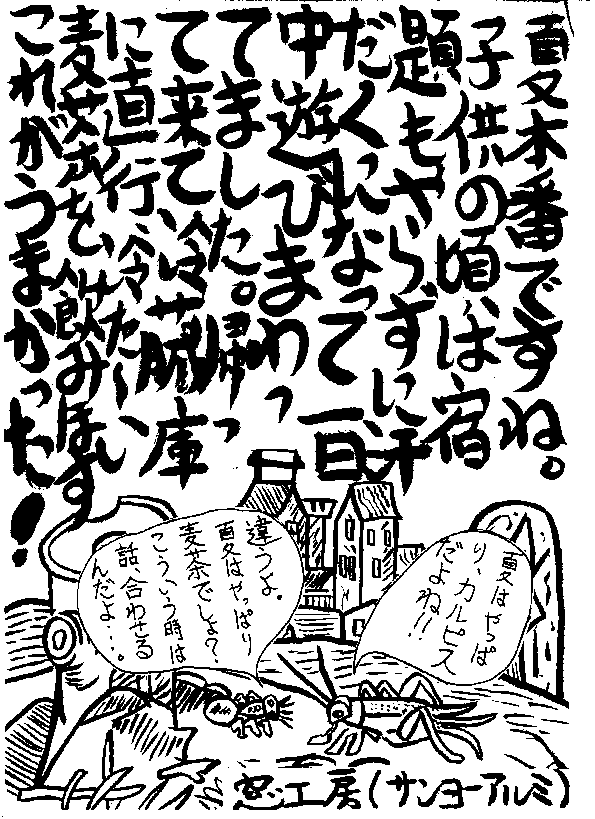 夏本番ですね。
子供の頃は宿
題もやらずに汗
だくになって一日
中遊びまわっ
てました。帰っ
て来て、冷蔵庫
に直行、冷た〜い
麦茶を、飲みほす
これがうまかった!
夏はやっぱ
り、カルピス
だよね!!
違うよ。
夏はやっぱり
麦茶でしょ?
こういう時は
話、合わせる
んだよ…。
窓工房(サンヨーアルミ)